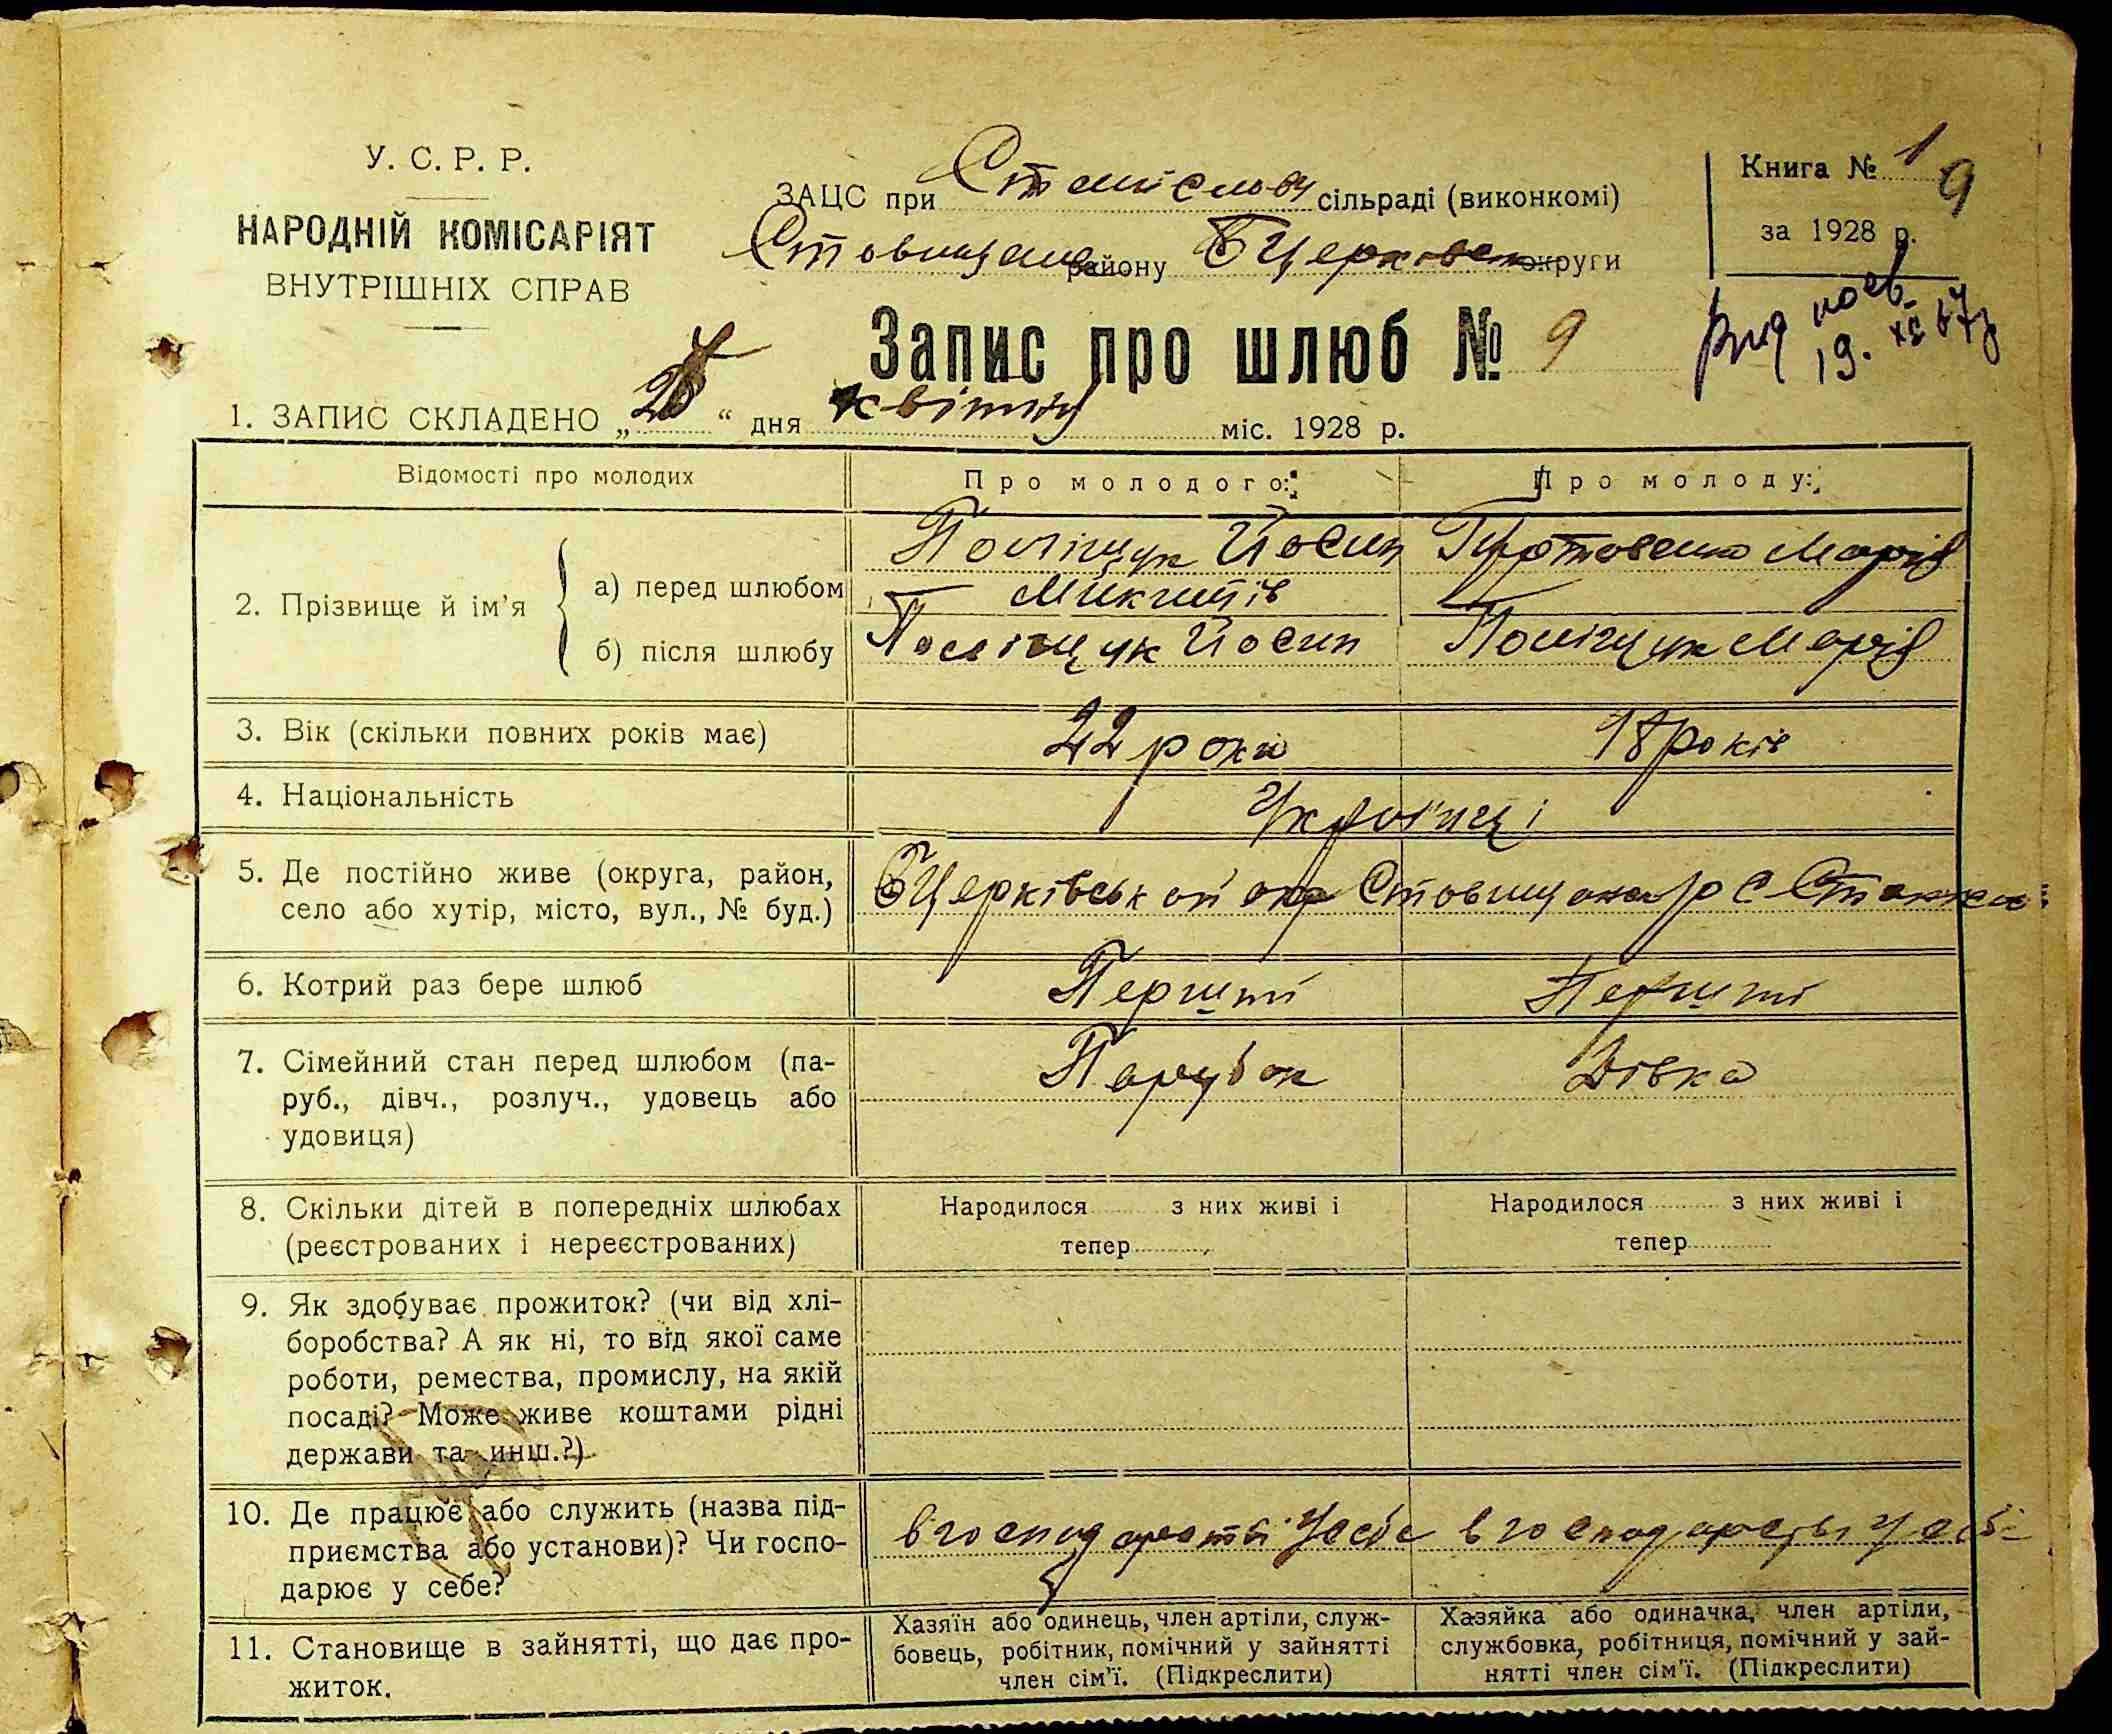 У. С. Р. Р.
НАРОДНІЙ КОМІСАРІЯТ
ВНУТРІШНІХ СПРАВ
ЗАЦС при сільраді (виконкомі)
району БЦерковськ округи
Книга № 1
9
за 1928 р.
19. XII 67
Запис про шлюб № 9
1. ЗАПИС СКЛАДЕНО „ “ дня квітня міс. 1928 р.
Відомості про молодих
Про молодого:
Про молоду:
2. Прізвище й ім’я
а) перед шлюбом
Поліщук Йосип
Микитів
Марія
б) після шлюбу
Поліщук Йосип
Поліщук Марія
3. Вік (скільки повних років має)
22 роки
18 років
4. Національність
Українці
5. Де постійно живе (округа, район,
село або хутір, місто, вул., № буд.)
БЦерківської окр р с
6. Котрий раз бере шлюб
Перший
Перший
7. Сімейний стан перед шлюбом (па-
руб., дівч., розлуч., удовець або
удовиця)
Парубок
Дівка
8. Скільки дітей в попередніх шлюбах
(реєстрованих і нереєстрованих)
Народилося з них живі і
тепер
Народилося з них живі і
тепер
9. Як здобуває прожиток? (чи від хлі-
боробства? А як ні, то від якої саме
роботи, ремества, промислу, на якій
посаді? Може живе коштами рідні
держави та инш.?)
10. Де працює або служить (назва під-
приємства або установи)? Чи госпо-
дарює у себе?
в господарстві у себе
в господарстві у себе
11. Становище в зайнятті, що дає про-
житок.
Хазяїн або одинець, член артіли, служ-
бовець, робітник, помічний у зайнятті
член сім’ї. (Підкреслити)
Хазяйка або одиначка, член артіли,
службовка, робітниця, помічний у зай-
нятті член сім’ї. (Підкреслити)